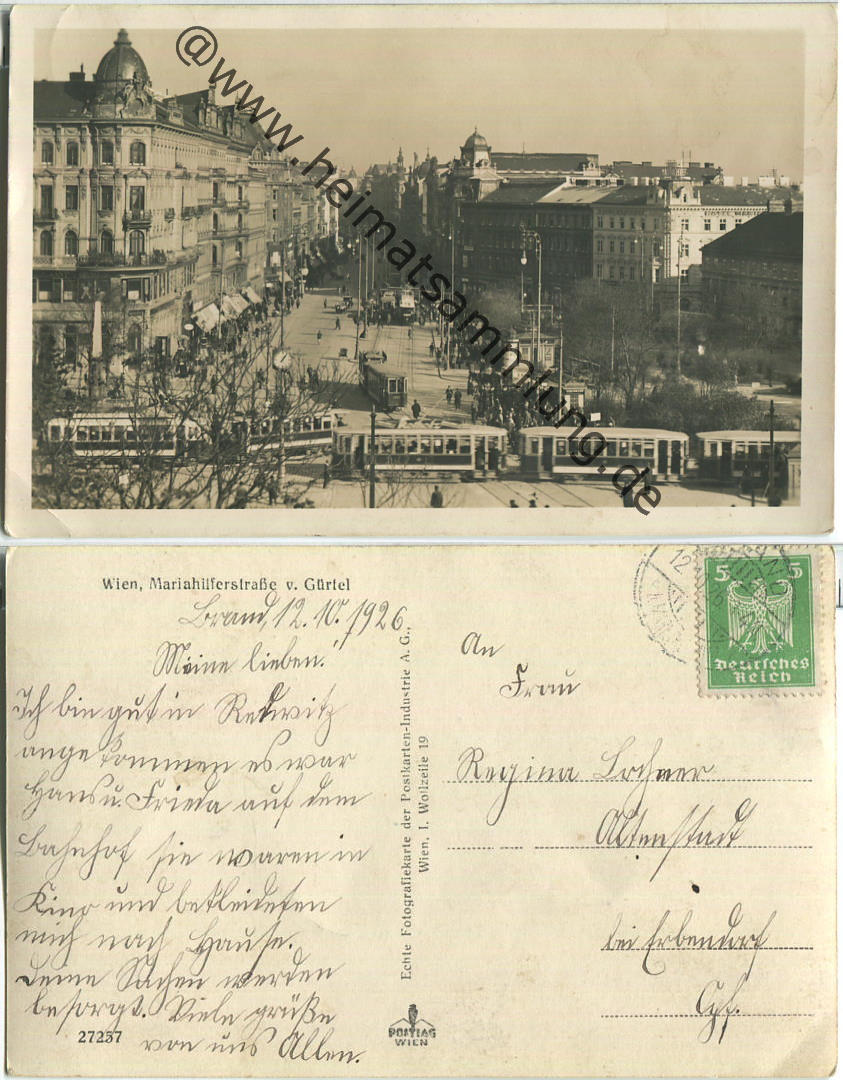 @www.heimatsammlung.de
Wien, Mariahilferstraße v. Gürtel
Brand, 12.10.1926
Meine lieben!
Ich bin gut in Redwitz
angekommen es war
Hans u. Frieda auf dem
Bahnhof sie waren in
Kino und bekleideten
mich nach Hause.
Deine Sachen werden
besorgt. Viele grüße
von uns Allen.
27257
Echte Fotografiekarte der Postkarten-Industrie A. G.,
Wien, I. Wollzeile 19
POSTIAG
WIEN
5 5
Deutsches
Reich
BRAND
12
An
Frau
Regina Lochner
Altenstadt
bei Erbendorf
Opf.